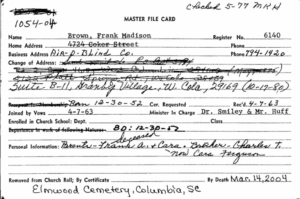 Checked 5-77 MRH
1054-04
MASTER FILE CARD
Name Brown, Frank Madison Register No. 6140
Home Address 4724 Coker Street Phone
Business Address Air-O-Blind Co. Phone 794-1920
Change of Address
Suite B-11, Granby Village, W. Cola, 29169 (10-17-80)
Born 12-30-52 Com. Requested Rec'd 4-7-63
Joined by Vows 4-7-63 Minister in Charge Dr. Smiley & Mr. Huff
Enrolled in Church School: Dept. Class
Experience in work of following Natures: BD: 12-30-52
deceased
Personal Information: Parents - Frank A. & Cora. Brother - Charles T.
now Cora Ferguson
Removed from Church Roll; By Certificate By Death Mar. 14, 2004
Elmwood Cemetery, Columbia, SC